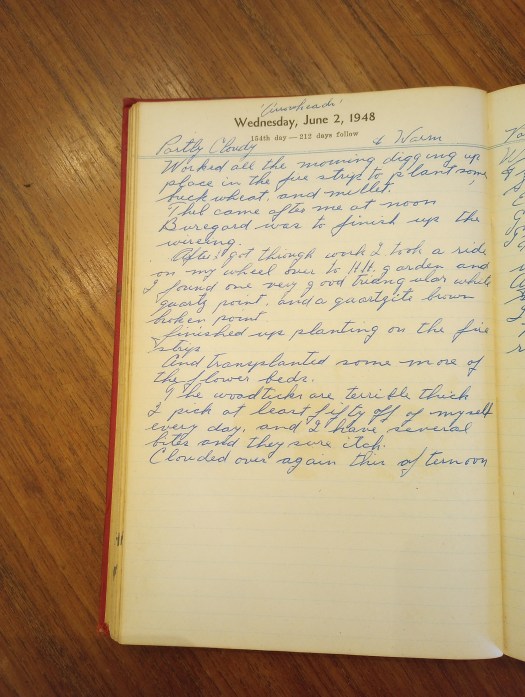 'Arrowheads'
Wednesday, June 2, 1948
154th day—212 days follow
Partly Cloudy & Warm
Worked all the morning digging up
place in the fire strip to plant some
buckwheat, and millet.
Thel came after me at noon
Buregard was to finish up the
wireing.
After I got through work I took a ride
on my wheel over to H.H. garden and
I found one very good triangular white
quartz point, and a quartzite brown
broken point
finished up planting on the fire
strip
And transplanted some more of
the flower beds.
The woodticks are terrible thick
I pick at least fifty off of myself
every day, and I have several
bites and they sure itch.
Clouded over again this afternoon